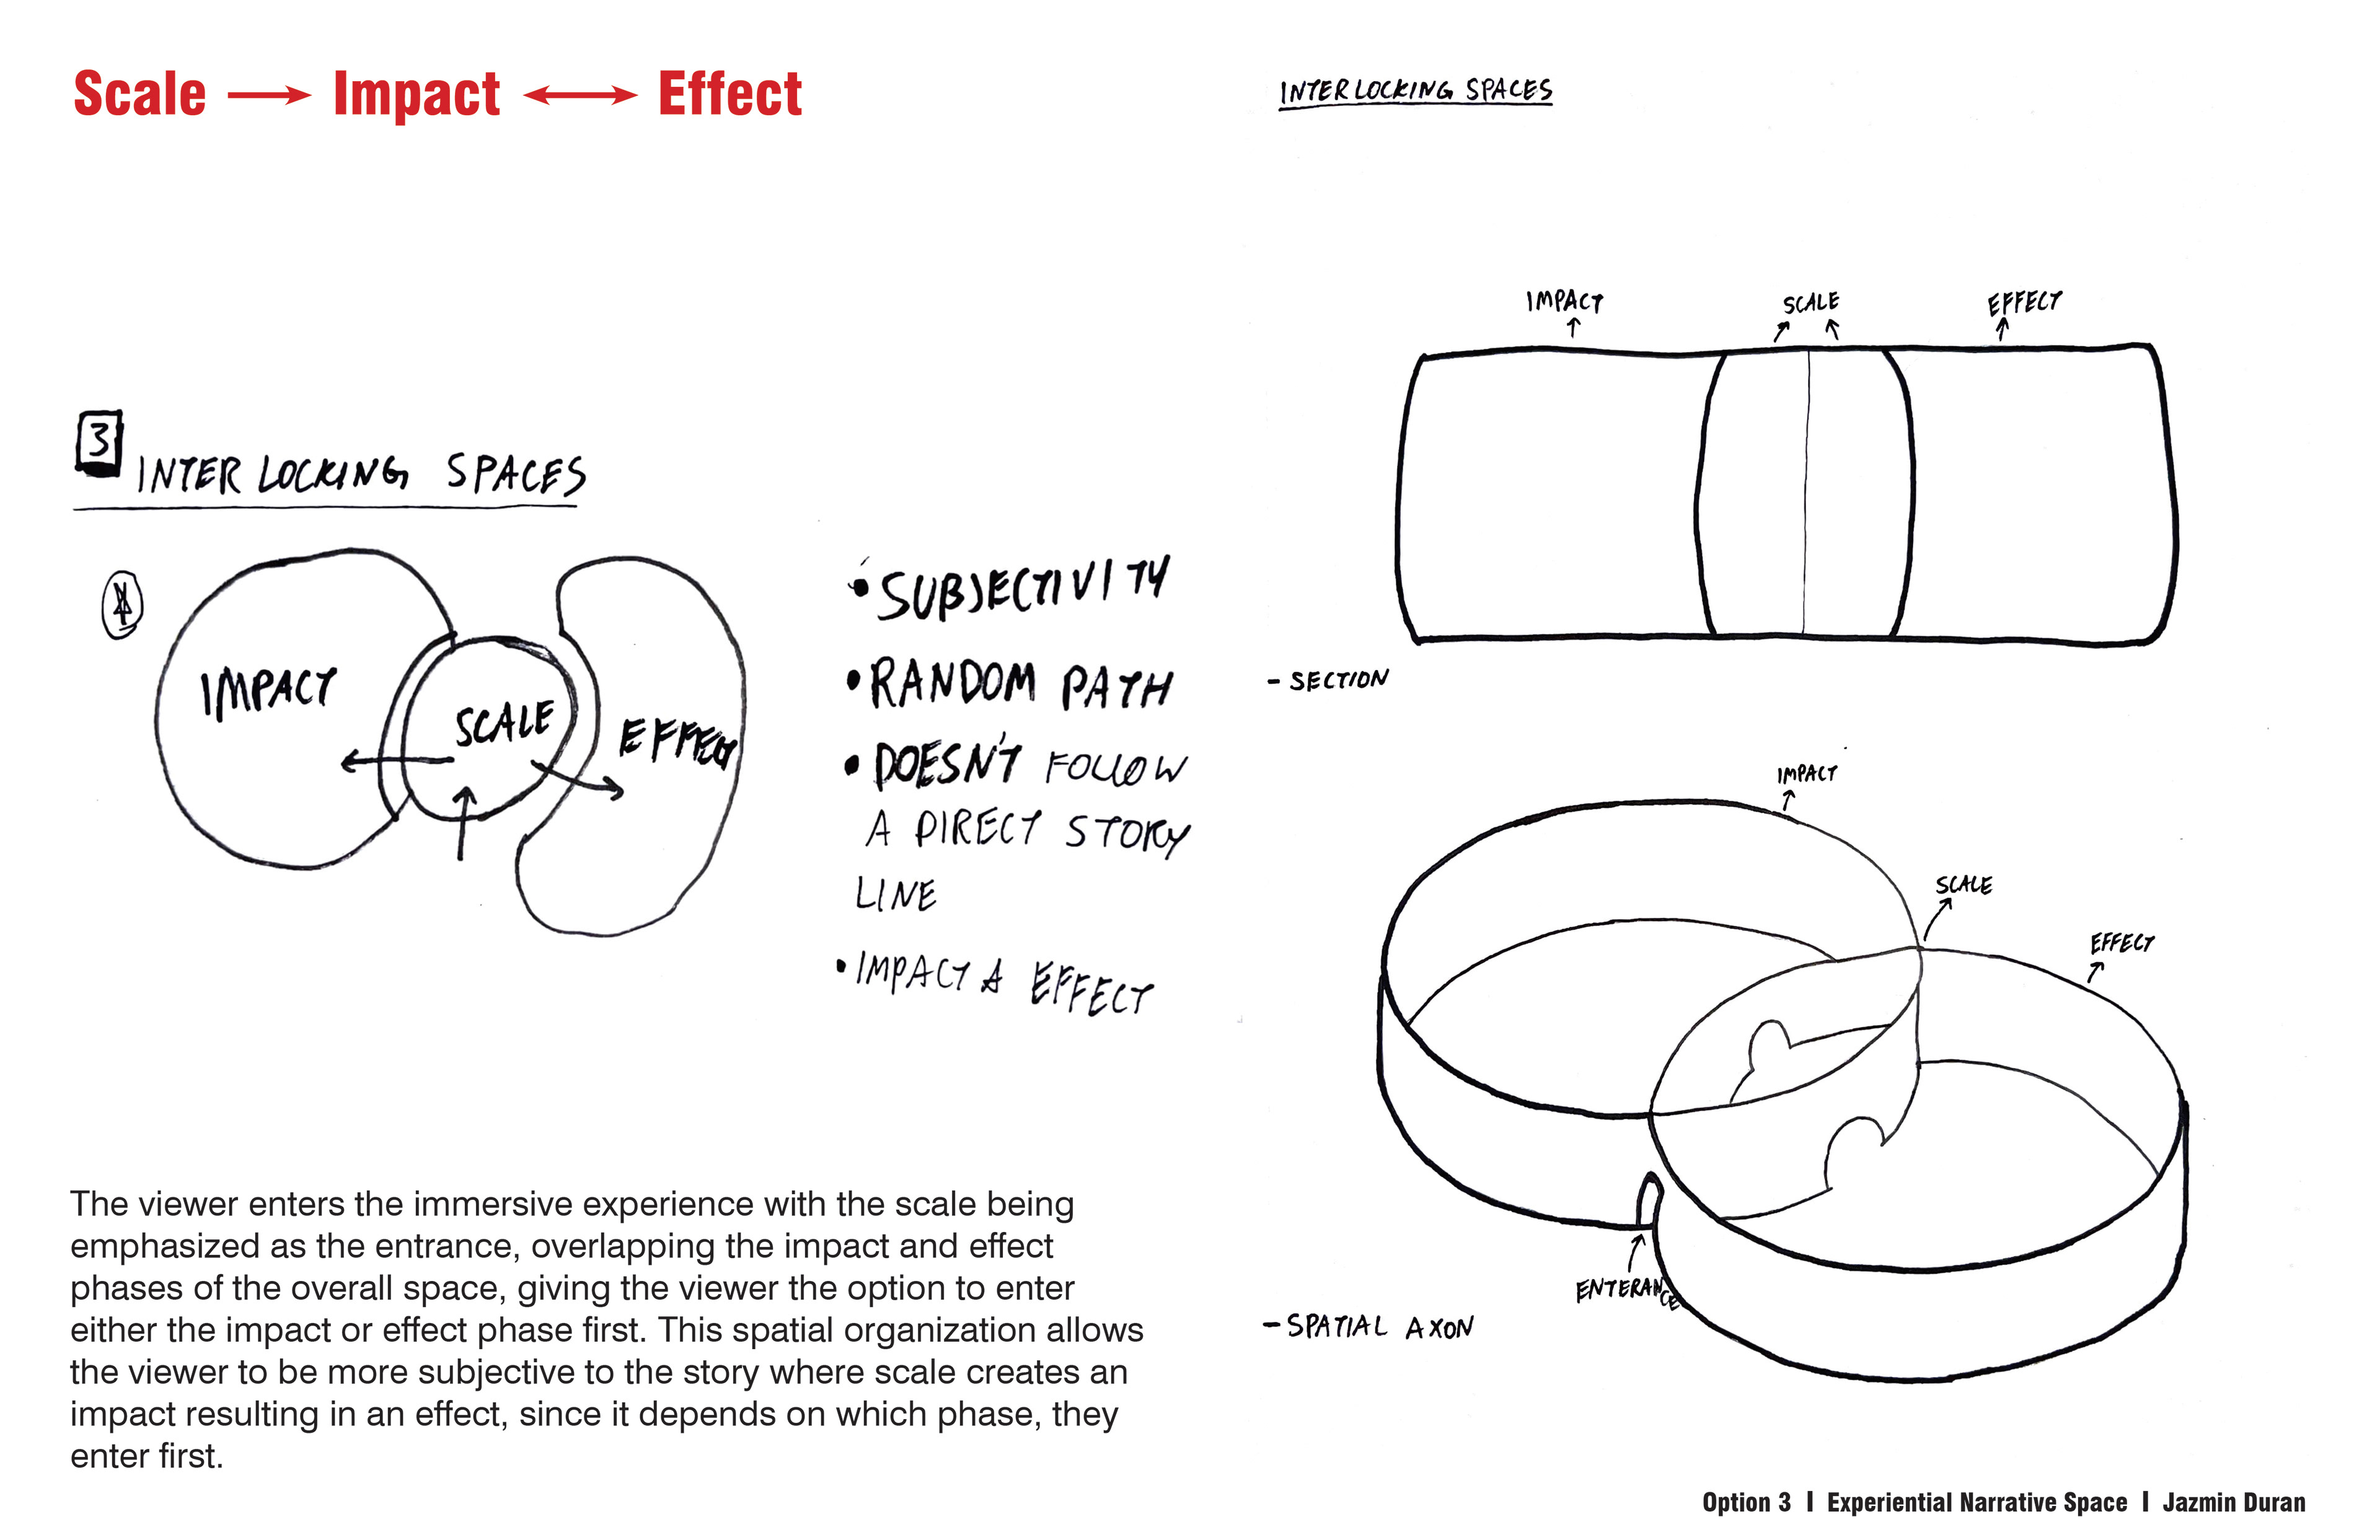 Scale → Impact ↔ Effect
3
INTERLOCKING SPACES
IMPACT
SCALE
EFFECT
• SUBJECTIVITY
• RANDOM PATH
• DOESN'T FOLLOW
A DIRECT STORY
LINE
• IMPACT & EFFECT
The viewer enters the immersive experience with the scale being
emphasized as the entrance, overlapping the impact and effect
phases of the overall space, giving the viewer the option to enter
either the impact or effect phase first. This spatial organization allows
the viewer to be more subjective to the story where scale creates an
impact resulting in an effect, since it depends on which phase, they
enter first.
INTERLOCKING SPACES
IMPACT
SCALE
EFFECT
- SECTION
IMPACT
SCALE
EFFECT
ENTERANCE
- SPATIAL AXON
Option 3 | Experiential Narrative Space | Jazmin Duran